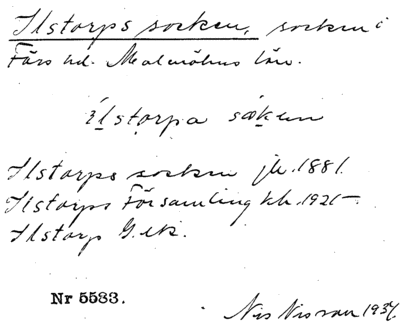 Ilstorps socken, socken i
Färs hd. Malmöhus län.
ilstorpa sœken
Ilstorps socken jb. 1881.
Ilstorps Församling kb. 1925.
Ilstorp G.ek.
Nr 5583.
Nis Nisson 1934.